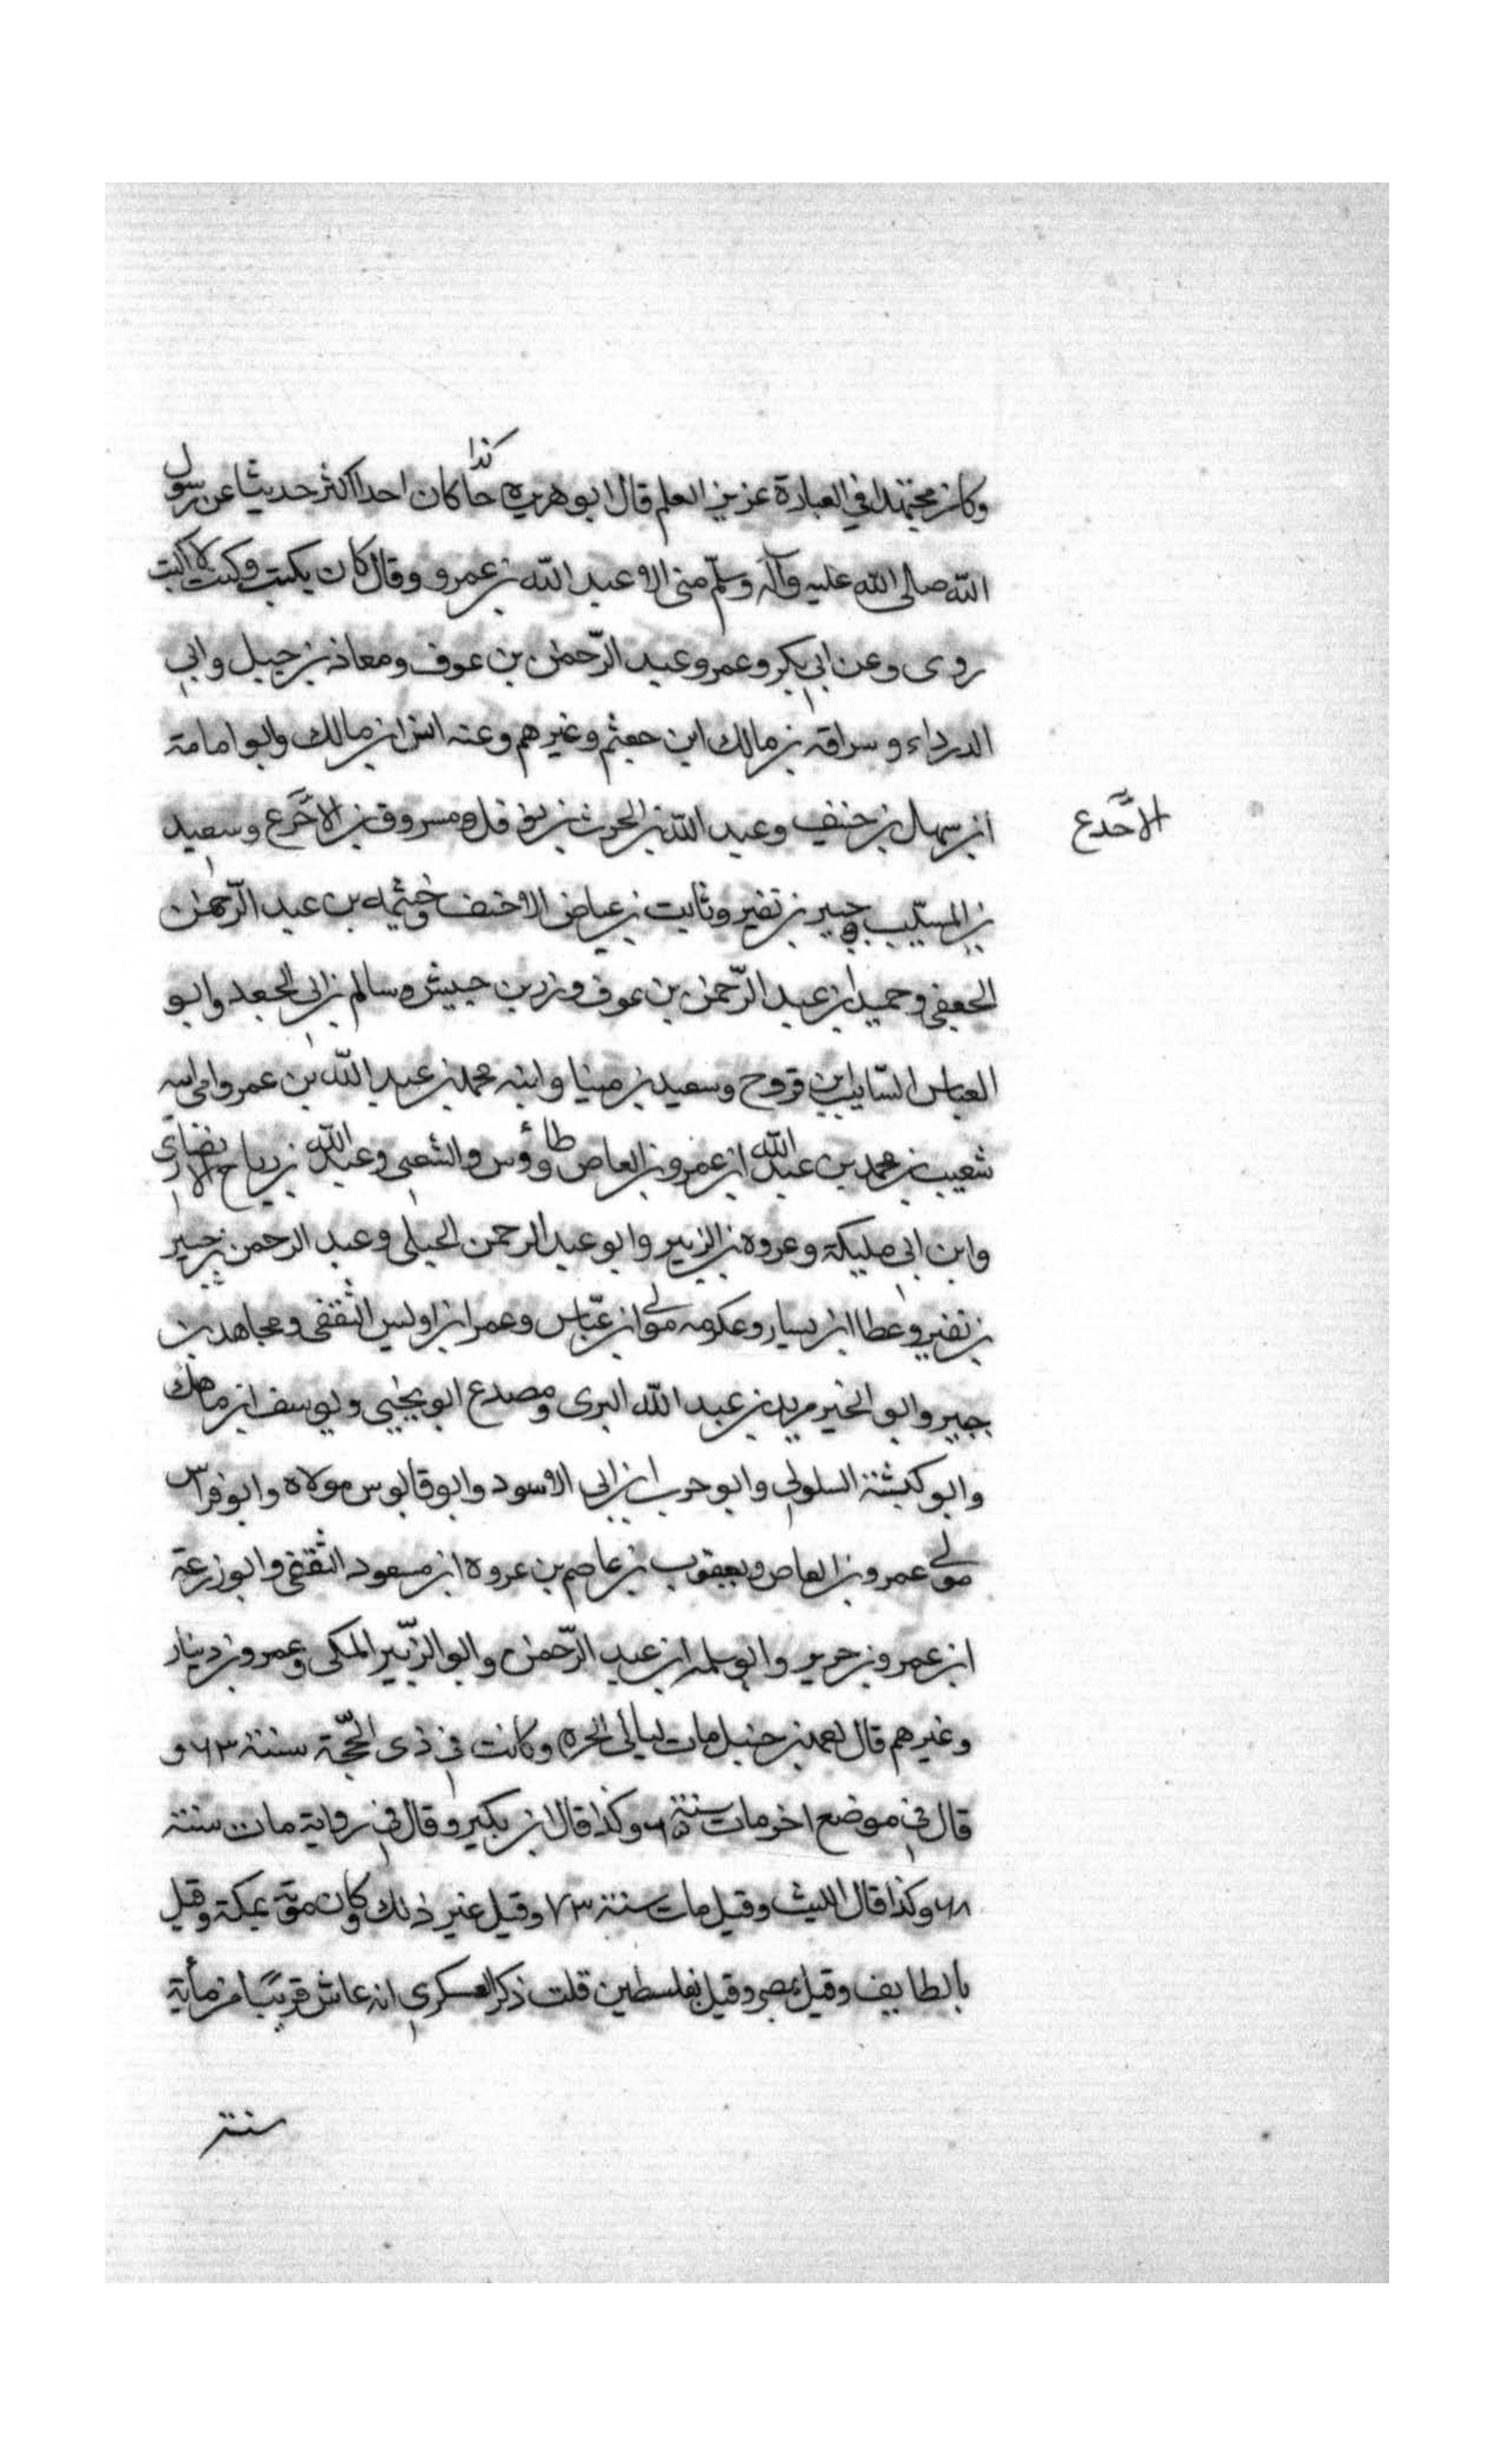 كذا
وكان مجتهدا في العبادة عزيز العلم قال ابو هريره حا كان احد اكثر حديثا عن رسول
الله صلى الله عليه وآله وسلّم منى الا عبد الله بن عمرو وقال كان يكتب وكنت لا اكتب
روى وعن ابي بكر وعمر وعبد الرّحمن بن عوف ومعاذ بن جبل وابي
الدرداء وسراقه بن مالك ابن جعثم وغيرهم وعنه انس ابن مالك وابو امامة
ابن سهل بن حنيف وعبد الله بن الحرث بن نوفل ومسروق بن الاجرع وسعيد
الاجدع
بن المسيّب وجبير بن نفير وثابت بن عياض الاحنف وخيثمه بن عبد الرّحمن
الجعفى وحميد ابن عبد الرّحمن بن عوف وزر بن حبيش وسالم بن ابى الجعد وابو
العباس السّايب ابن فروح وسعيد بن مينا وابنه محمد بن عبد الله بن عمرو وابن ابنه
شعيب بن محمد بن عبد الله ابن عمرو بن العاص وطاؤوس والشعبى وعبد الله بن رباح الانصاري
وابن ابى مليكة وعروه بن الزبير وابو عبد الرحمن الحبلى وعبد الرحمن بن جبير
بن نفير وعطا ابن يسار وعكرمه مولى ابن عبّاس وعمر ابن اويس الثقفى ومجاهد بن
جبير وابو الخير مريد بن عبد الله البرى ومصدع ابو يحيى ويوسف ابن ماهك
وابو كبشة السلولي وابو حرب ابن ابى الاسود وابو قابوس مولاه وابو فراس
مولى عمرو بن العاص ويعقوب بن عاصم بن عروه ابن مسعود الثقفى وابو زرعة
ابن عمرو بن جرير وابو سلمه ابن عبد الرّحمن وابو الزّبير المكى وعمرو بن دينار
وغيرهم قال احمد بن حنبل مات ليالى الحره وكانت في ذى الحجّة سنة ٦٣ و
قال في موضع اخر مات سنة ٦٥ وكذا قال ابن بكير وقال في رواية مات سنة
٦٨ وكذا قال الليث وقيل مات سنة ٧٣ وقيل غير ذلك وكان موته بمكة وقيل
بالطايف وقيل بمصر وقيل بفلسطين قلت ذكر العسكري انه عاش قريبًا من مأية
سنة